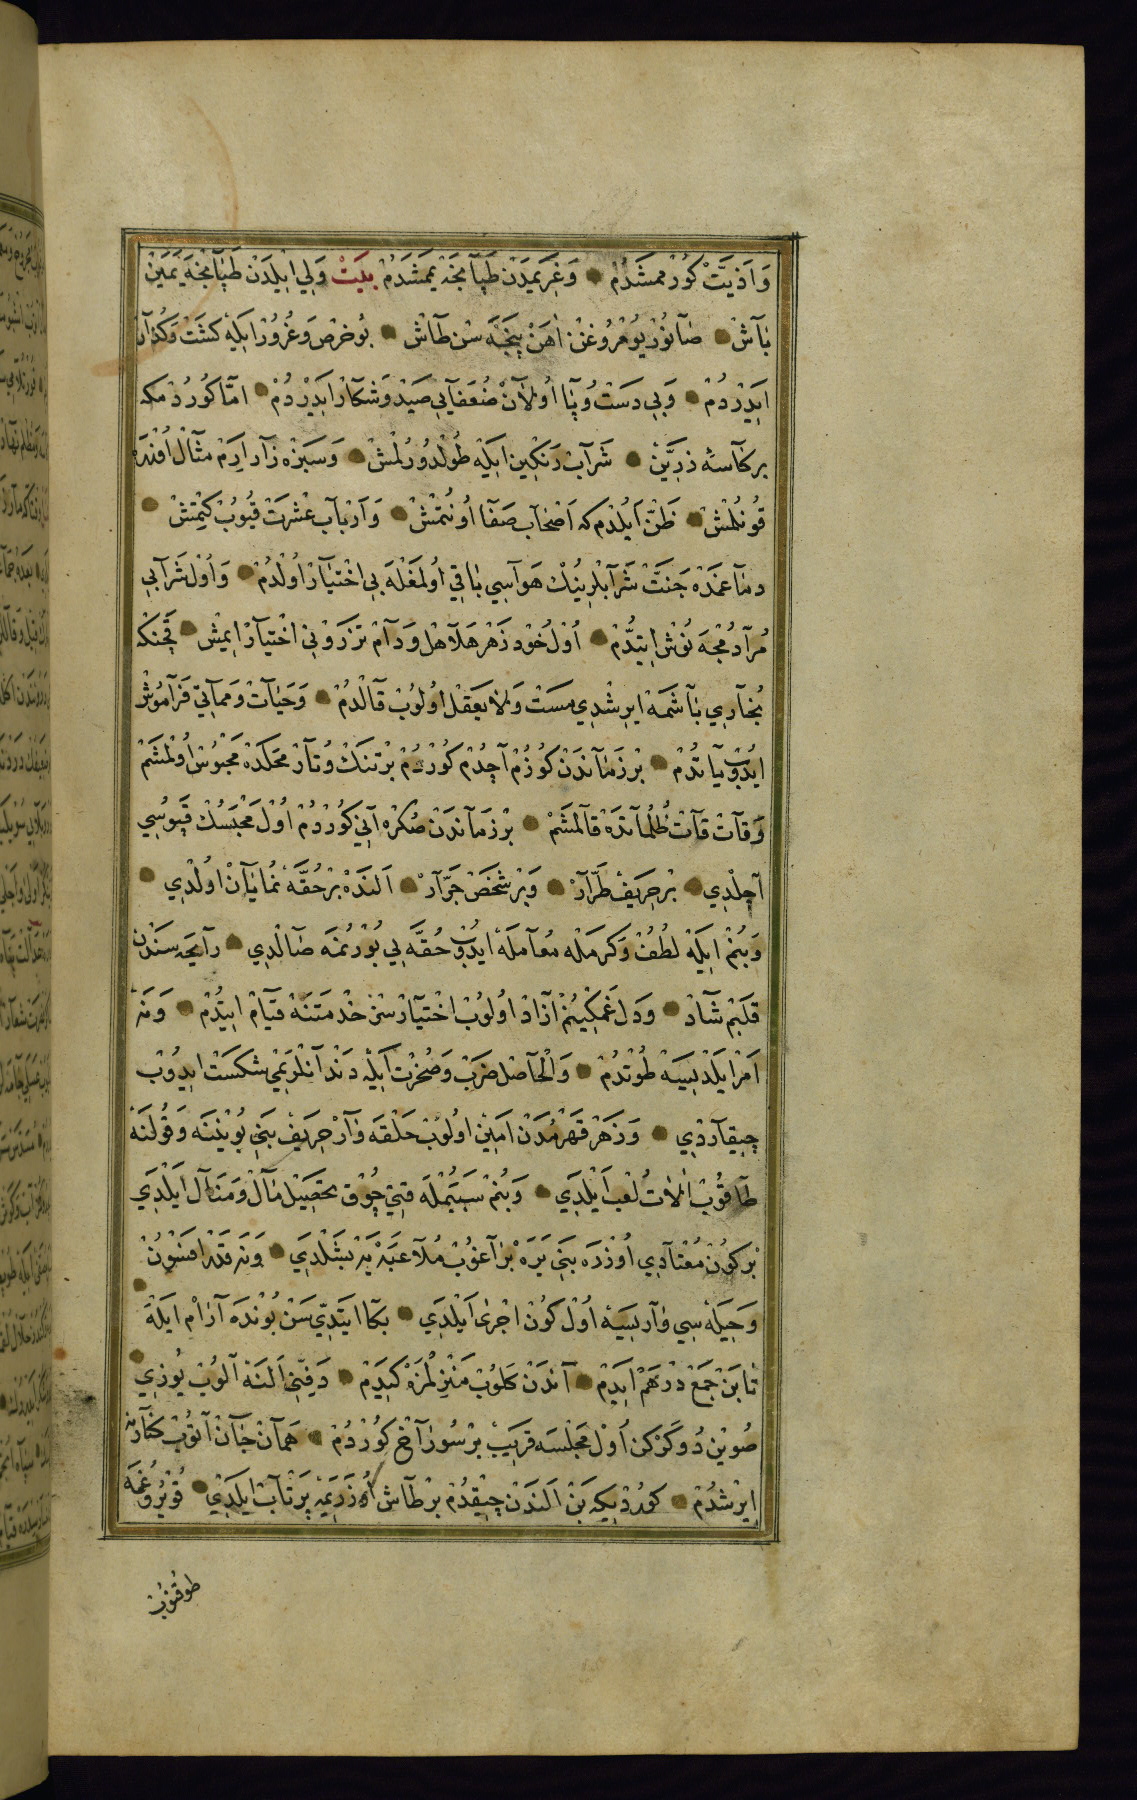 وَاَذِيَّتْ كُورْممِشَدُمْ وَغَرِيمَدَنْ طَپَآنجَه يمَشَدُمْ بيَتْ وَلِي اِيلدَنْ طَپَآنجَه يَمَينْ
بَآشْ صَآنُورْ يُومْرُوغِنْ اٰهَنْ پَنجَه سِنْ طَآشْ بُو حِرْص وَغُرُورْ اِيَلِه كَشَتْ وَكُذَارْ
ايَدِرْدُمْ وَبِي دَسْتْ وُپَا اُولَآنْ ضُعَفَآيِي صَيْد وَشِكَآرْ ايَدِرْدُمْ امَّا كُورْدُمكه
بر كَآسَهٔ زَرِّينْ شَرَآبْ رَنْكِين ايَلَه طُولْدُورُلْمِشْ وَسَبْزِه زَآر اِرَمْ مِثَآلْ اُوزْرَه
قُونُلْمِشْ ظَنّ اَيْلدُم كه اَصْحَآب صَفَا اُونُتْمِشْ وَاَرْبَآب عِشْرَتْ قُيُوبْ كِيْتمِشْ
دمَآغمَدَه جَنَّتْ شَرَآبْلَرِينُكْ هَوَآسِي بَاقِي اُولمَغْلَه بِي اخْتيَآرْ اُولدُمْ وَاُولْ شَرَآبِي
مُرَآدُمجَه نُوشْ اِيتدُمْ اُولْ خُود زَهْر هَلَآهِل وَدَآم تَزَرْو بِي اخْتيَآرْ ايمِشْ قَچَنكه
بُخَآرِي بَآشمَه ايرِشْدِي مَسَتْ وَلَا يَعقِلْ اُولُوبْ قَآلدُمْ وَحَيَاتْ وَمَمَآتِي فَرَآمُوشْ
ايدُوبْ يَآتدُمْ بر زَمَآندَنْ كُوزُم آچدُم كُورْدُمْ بِر تَنكْ وُتَآرْ مَحَلدَه مَحْبُوسْ اُولمشَمْ
وَقَآتْ قَآتْ ظُلُمَآتدَه قَآلمشَمْ بر زَمَآندَنْ صُكرَه آنِي كُورْدُمْ اُولْ مَحْبسُكْ قَپُوسِي
آچِلدِي بر حَرِيفْ طَرَّآرْ وَبِر شَخَصْ جَرَّآرْ اَلندَه بِر حُقَّه نُمَايَآنْ اُولدِي
وَبُنُمْ ايلَه لُطُفْ وَكَرَمْلَه مُعَآمَلَه ايدُوبْ حُقَّه يِي بُورْنُمَه صَالدِي رَآيحَه سِندَن
قَلبُمْ شَآدْ وَدِل غَمكِينُمْ اٰزَادْ اُولُوبْ اخْتيَآرْسِزْ خِدْمَتنَه قيَآمْ ايتدُمْ وَنَه
اَمْر ايلدِيسَه طُوتدُمْ وَالْحَآصِل ضَرْبْ وَصُخْرِتْ ايلَه دَندَآنلَرُمِي شكَسْتْ ايدُوبْ
چيقَآردِي وَزَهْر قَهْرُمدَن اَمِينْ اُولُوبْ حَلْقَه وَآرْ حَرِيفْ بنِي بُويننَه وَقُولنَه
طَاقُوبْ اٰلَاتْ لُعَبْ ايلدِي وَبُنُمْ سَبَبُملَه قَتِي چُوق تحَصِيلْ مَالْ وَمَنَآلْ ايلدِي
بِر كُونْ مُعْتَآدِي اُوزْرَه بنِي يَرَه بِرَآغُوبْ مُلَآعَبَه يَه بَشلدِي وَنَه قَدَرْ افسُونْ
وَحيلَه سِي وَآريسَه اُولْ كُونْ اجْرَى ايلدِي بكَا ايتدِي سَنْ بُوندَه آرَام ايلَه
تَا بَنْ جَمْع دِرْهَم ايدَيمْ آندَنْ كَلُوبْ مَنزِلُمزَه كيدَلم دَفِي اَلنَه آلُوبْ يُوزِي
صُويِن دُوكَركَن اُولْ مَجْلسَه قَرِيبْ بِر سُورَآخْ كُورْدُمْ هَمَآنْ جَآنْ آتُوبْ كنَآرِنَه
ايرِشدُمْ كُورْدِيكه بَنْ اَلندَنْ چيقدُمْ بِر طَآش اُوزَرِيمَه پَرْتَآبْ ايلدِي قُويْرُوغُمَه
طوقنوب